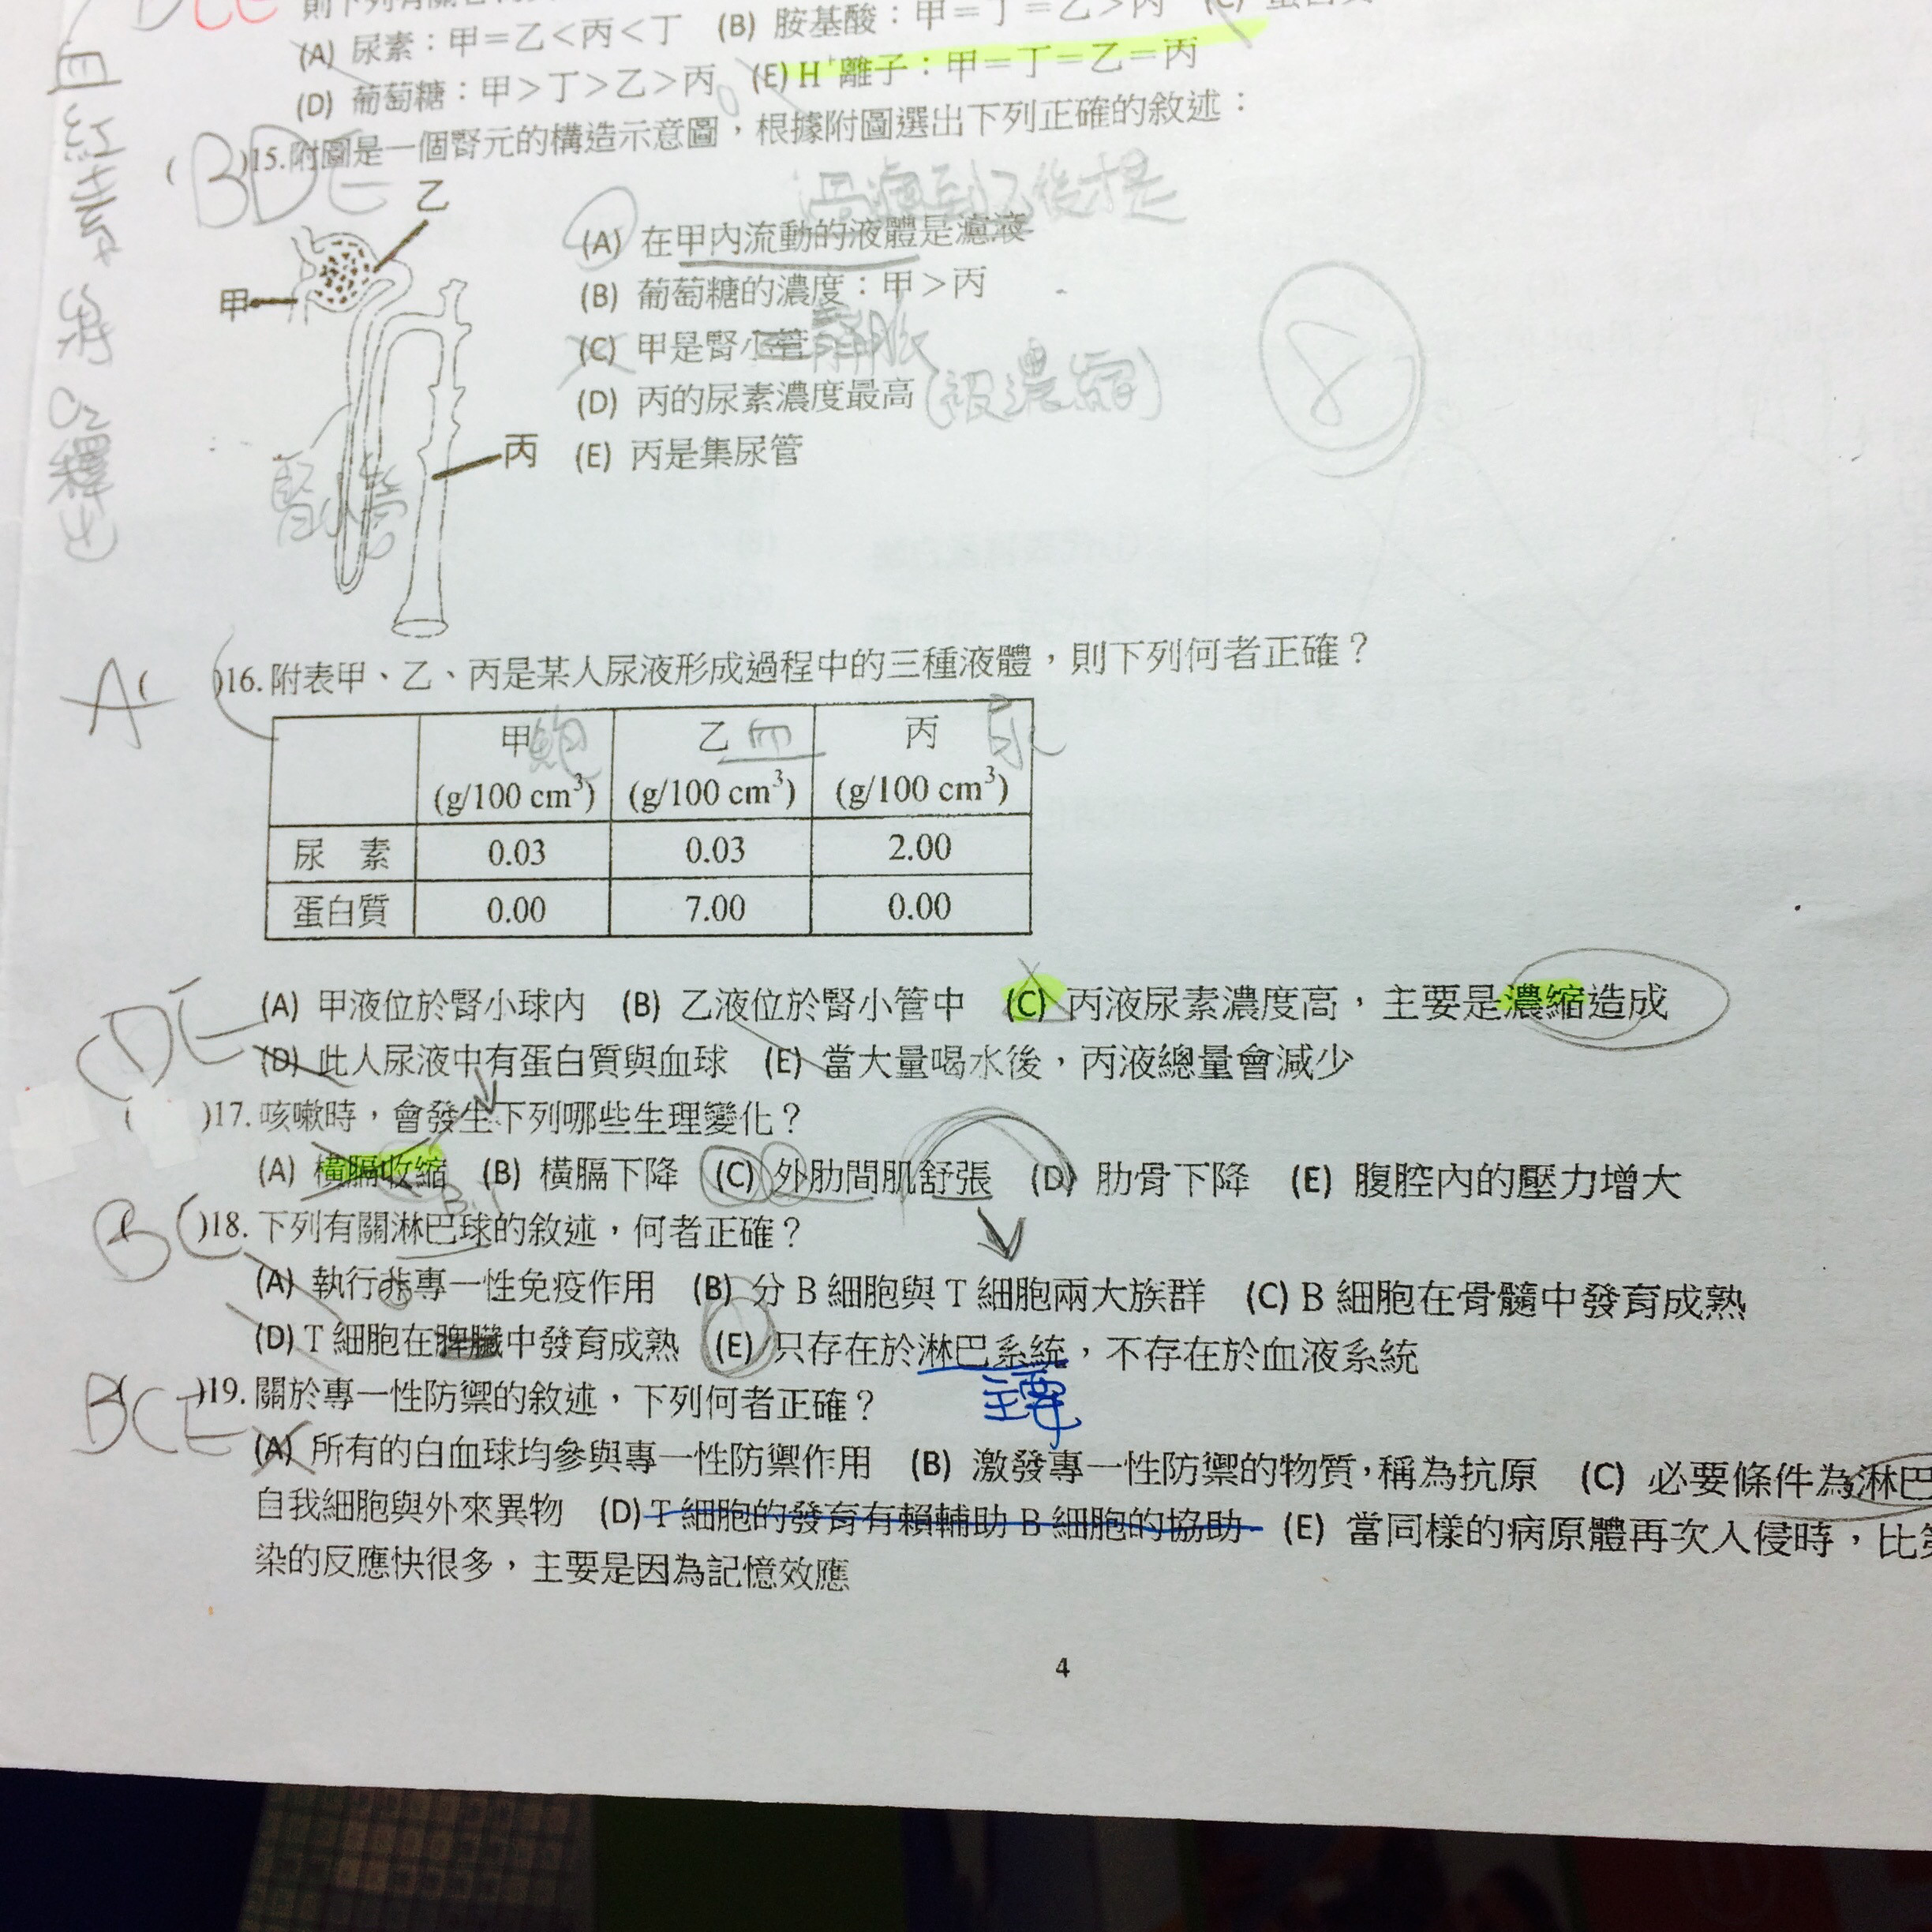 (A) 尿素：甲＝乙＜丙＜丁 (B) 胺基酸：甲＝丁＝乙＞丙 (C)
(D) 葡萄糖：甲＞丁＞乙＞丙 (E) H⁺離子：甲＝丁＝乙＝丙
血紅素 將 O₂ 釋出
BDE
( )15.附圖是一個腎元的構造示意圖，根據附圖選出下列正確的敘述：
乙
甲
丙
腎小管
到乙後才是
(A) 在甲內流動的液體是濾液
(B) 葡萄糖的濃度：甲＞丙
(C) 甲是腎小管
(D) 丙的尿素濃度最高 (被濃縮)
(E) 丙是集尿管
8
A
( )16.附表甲、乙、丙是某人尿液形成過程中的三種液體，則下列何者正確？
甲 乙 血 丙 尿
(g/100 cm³) (g/100 cm³) (g/100 cm³)
尿 素 0.03 0.03 2.00
蛋白質 0.00 7.00 0.00
(A) 甲液位於腎小球內 (B) 乙液位於腎小管中 (C) 丙液尿素濃度高，主要是濃縮造成
(D) 此人尿液中有蛋白質與血球 (E) 當大量喝水後，丙液總量會減少
CDE
( )17.咳嗽時，會發生下列哪些生理變化？
(A) 橫膈收縮 (B) 橫膈下降 (C) 外肋間肌舒張 (D) 肋骨下降 (E) 腹腔內的壓力增大
BC
( )18.下列有關淋巴球的敘述，何者正確？
(A) 執行非專一性免疫作用 (B) 分 B 細胞與 T 細胞兩大族群 (C) B 細胞在骨髓中發育成熟
(D) T 細胞在脾臟中發育成熟 (E) 只存在於淋巴系統，不存在於血液系統
主要
BCE
( )19.關於專一性防禦的敘述，下列何者正確？
(A) 所有的白血球均參與專一性防禦作用 (B) 激發專一性防禦的物質，稱為抗原 (C) 必要條件為淋巴
自我細胞與外來異物 (D) T 細胞的發育有賴輔助 B 細胞的協助 (E) 當同樣的病原體再次入侵時，比
染的反應快很多，主要是因為記憶效應
4